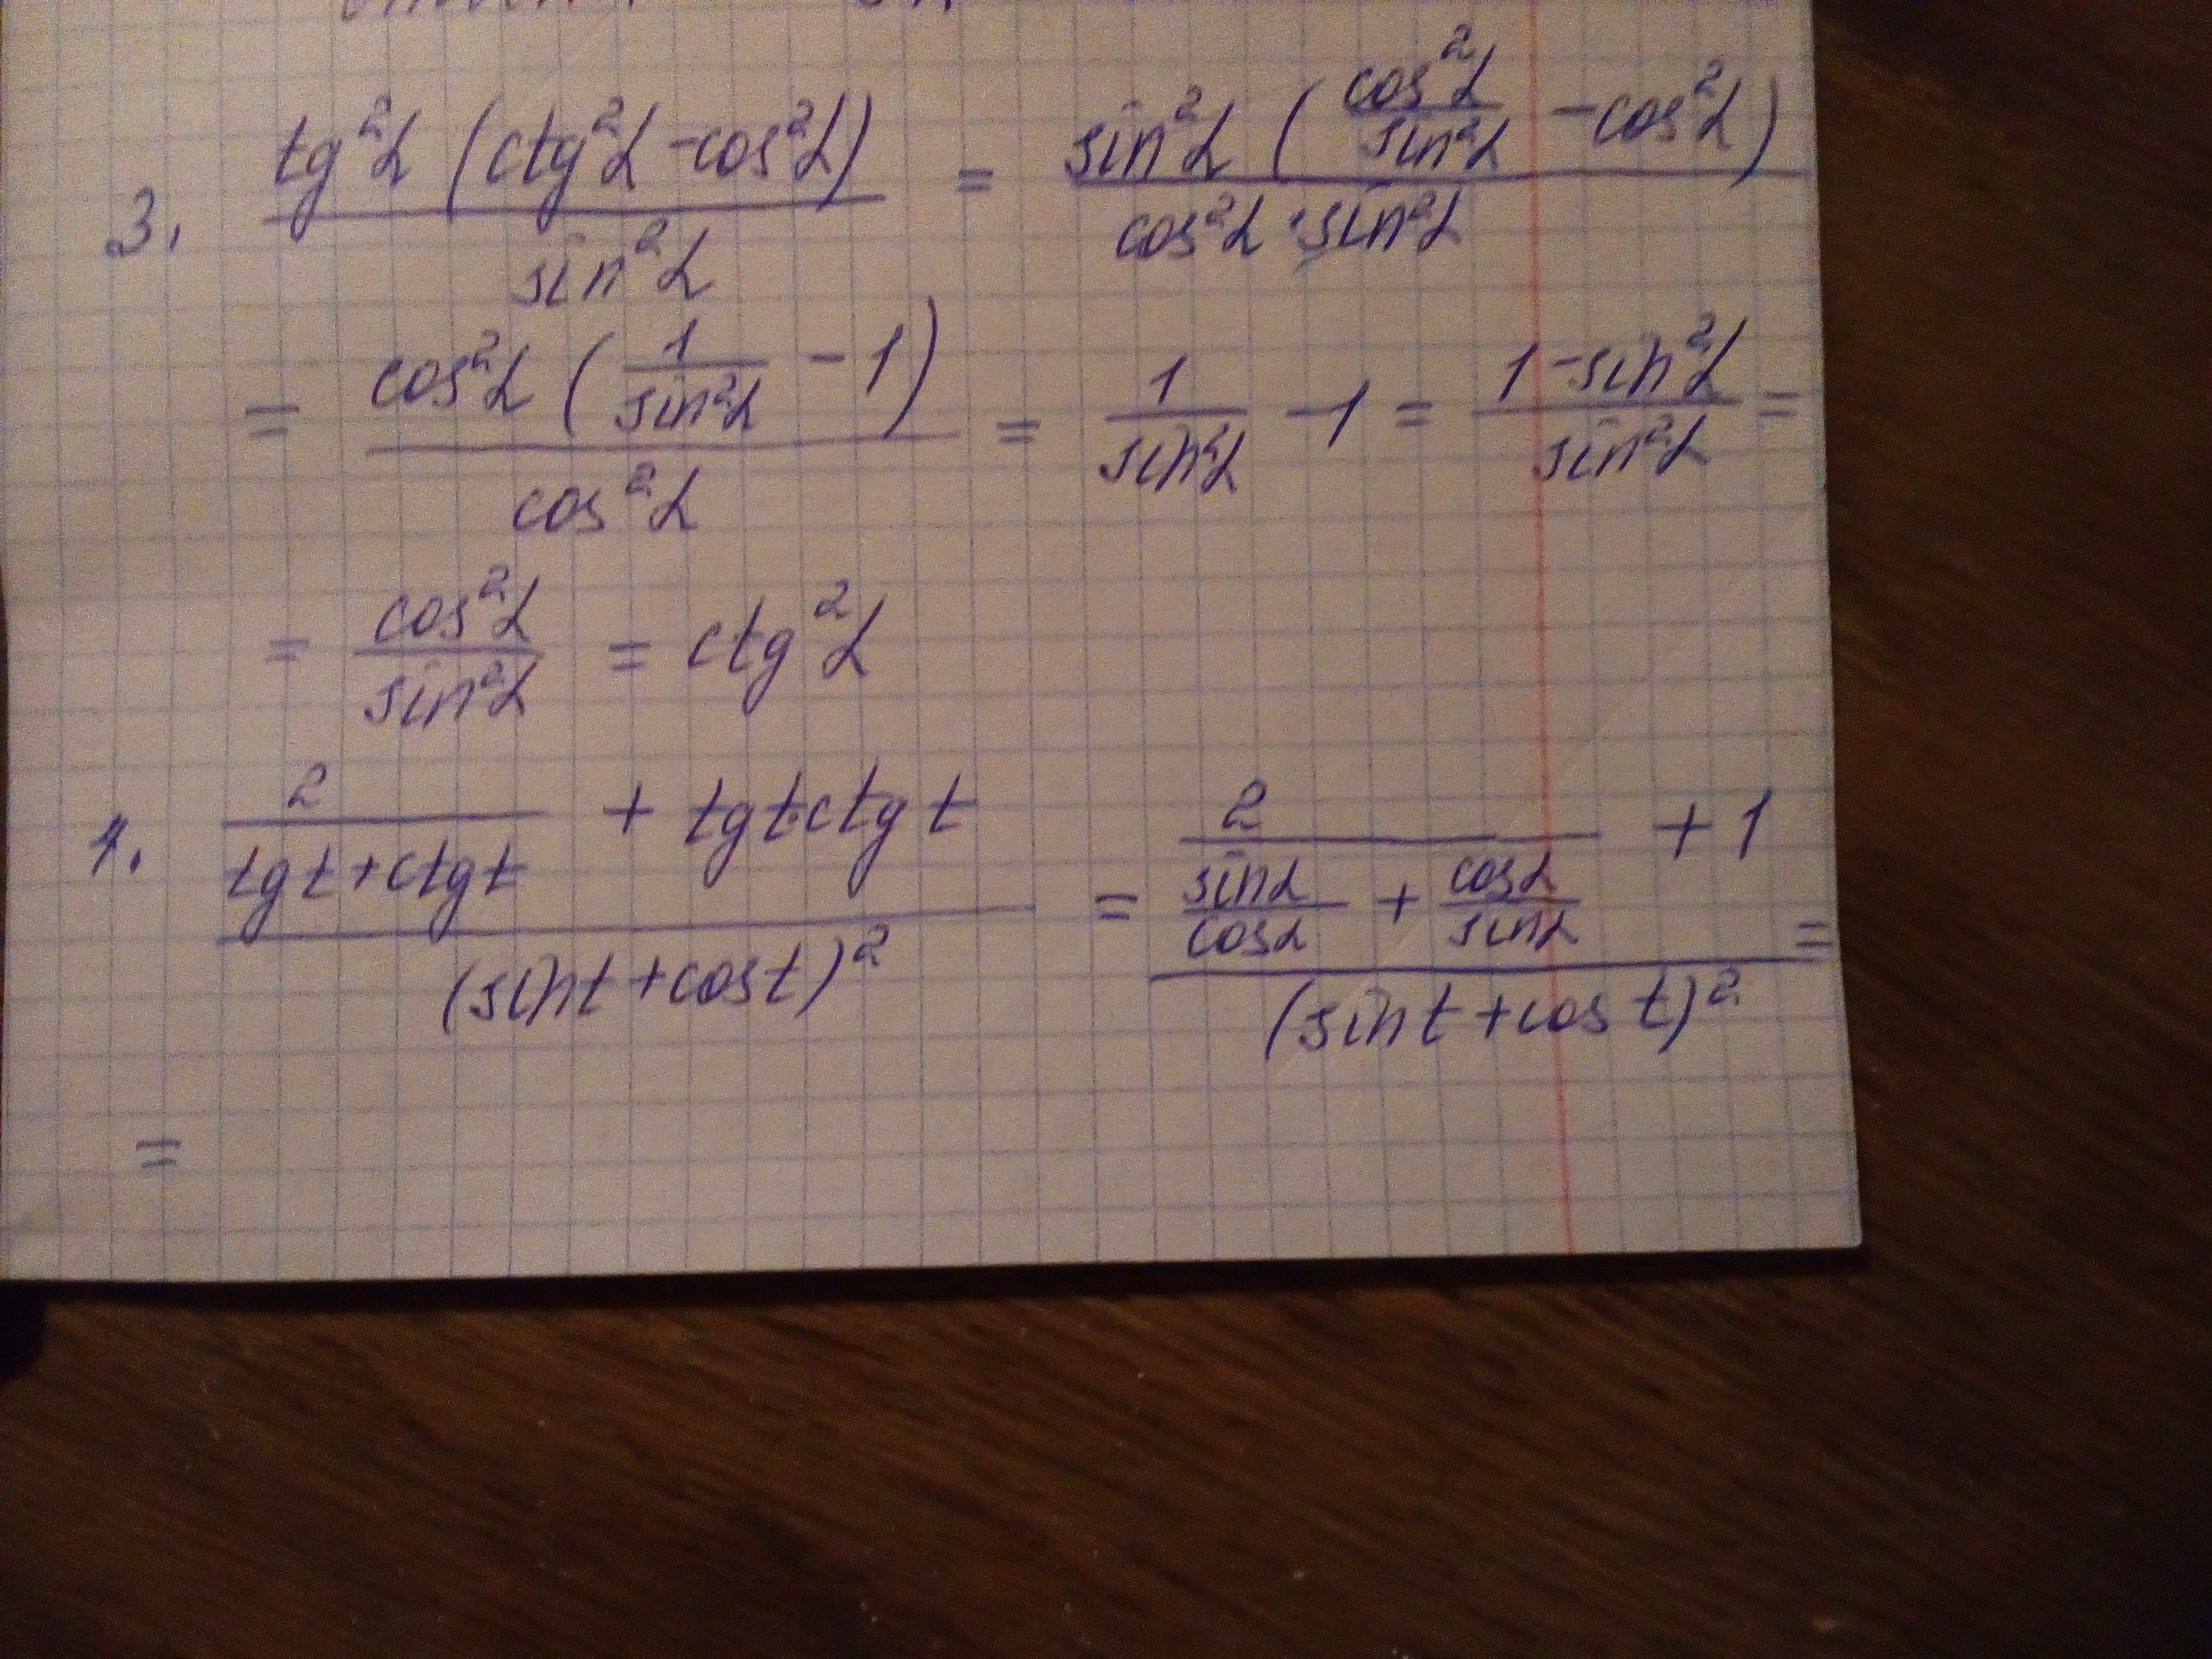 3. tg²α (ctg²α - cos²α) / sin²α = sin²α (cos²α / sin²α - cos²α) / cos²α · sin²α
= cos²α (1 / sin²α - 1) / cos²α = 1 / sin²α - 1 = 1 - sin²α / sin²α =
= cos²α / sin²α = ctg²α
4. 2 / tgt + ctgt + tgt·ctgt / (sint + cost)² = 2 / sinα / cosα + cosα / sinα + 1 / (sint + cost)² =
=